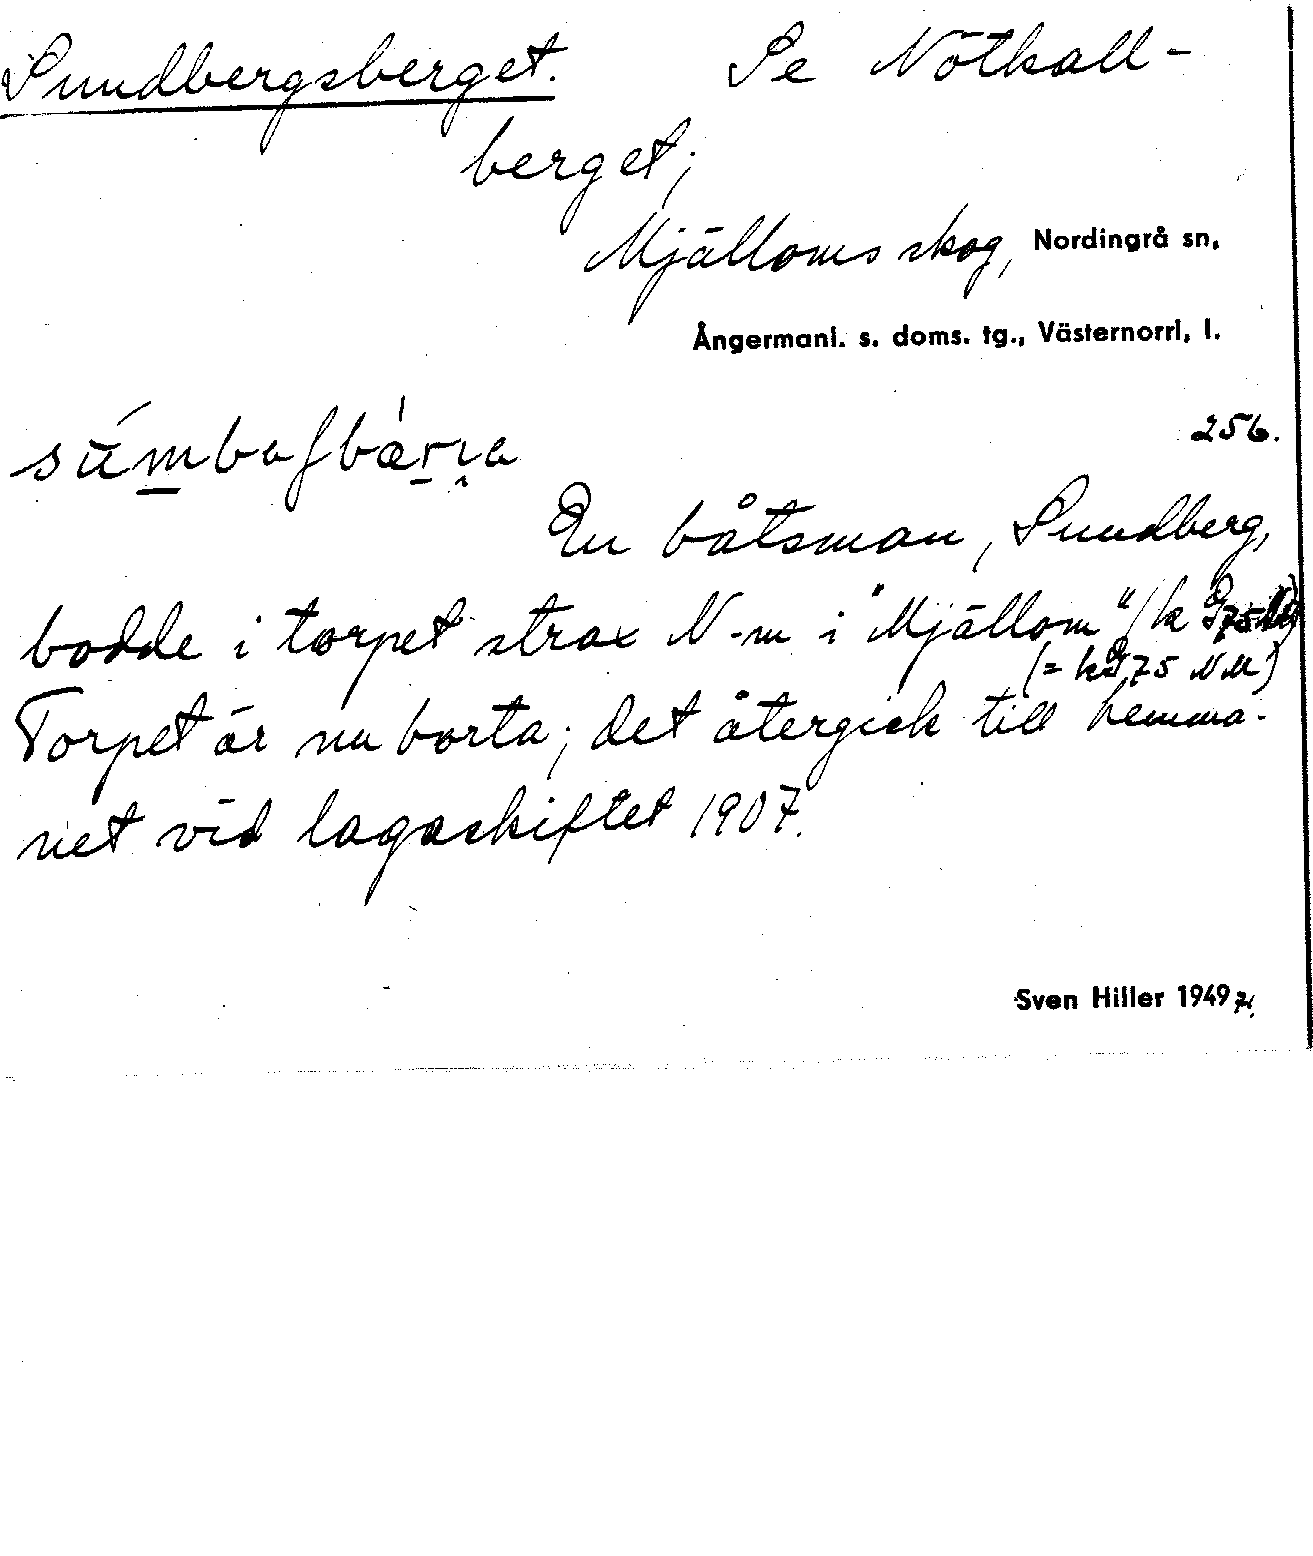 Sundbergsberget. Se Nötkall-
berget;
Mjälloms skog, Nordingrå sn,
Ångermanl. s. doms. tg., Västernorrl, l.
256.
En båtsman, Sundberg,
bodde i torpet strax N-m i "Mjällom" (k
(= k 75 NM)
Torpet är nu borta; det återgick till hemma-
net vid lagaskiftet 1907.
Sven Hiller 1949